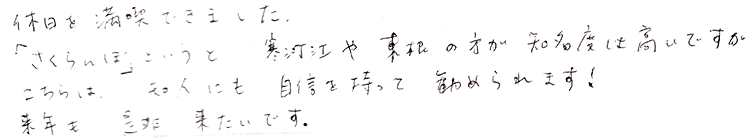 休日を満喫できました.
「さくらんぼ」というと 寒河江や東根の方が知名度は高いですが
こちらは、知人にも自信を持って勧められます!
来年も是非来たいです.